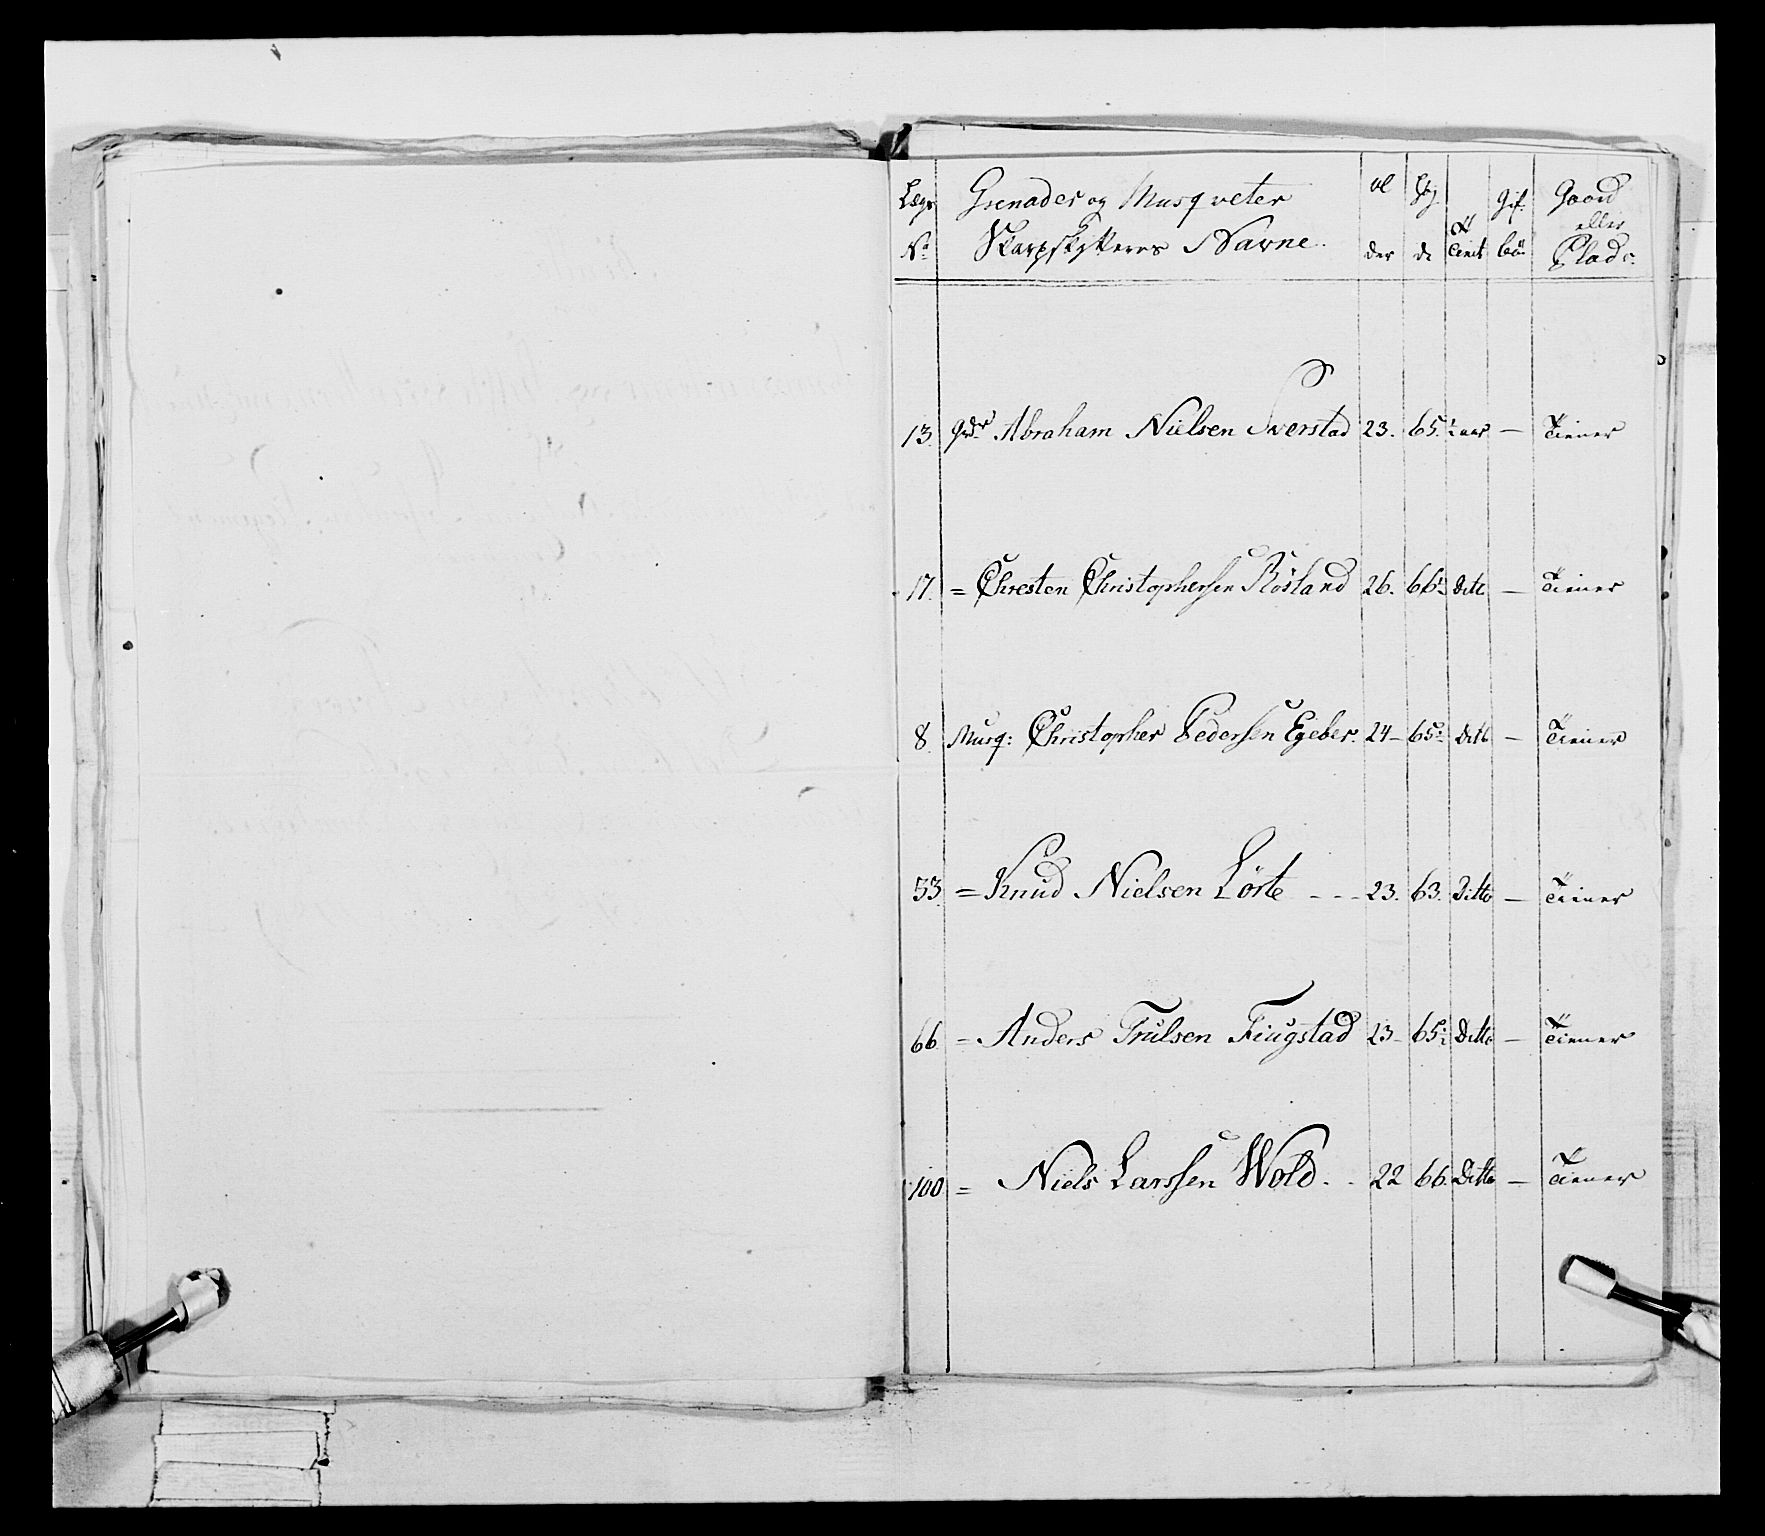 Lægs Grenader og Musqueter Al Høj Gif: Gaard
eller
No Skarpskytteres Navne. der de Tient bö: Plads.
13. Grdr Abraham Nielsen Sverstad 23. 65. 1 aar — Tiener
17. = Chresten Christophersen Rösland 26. 66 Ditto — Tiener
8. Musq: Christopher Pedersen Egeber. 24 – 65 Ditto — Tiener
53. = Knud Nielsen Lörte - - - 23. 63. Ditto — Tiener
66 = Anders Trulsen Fiugstad 23 – 65 Ditto — Tiener
100 = Niels Larssen Wold. - 22 66. Ditto — Tiener